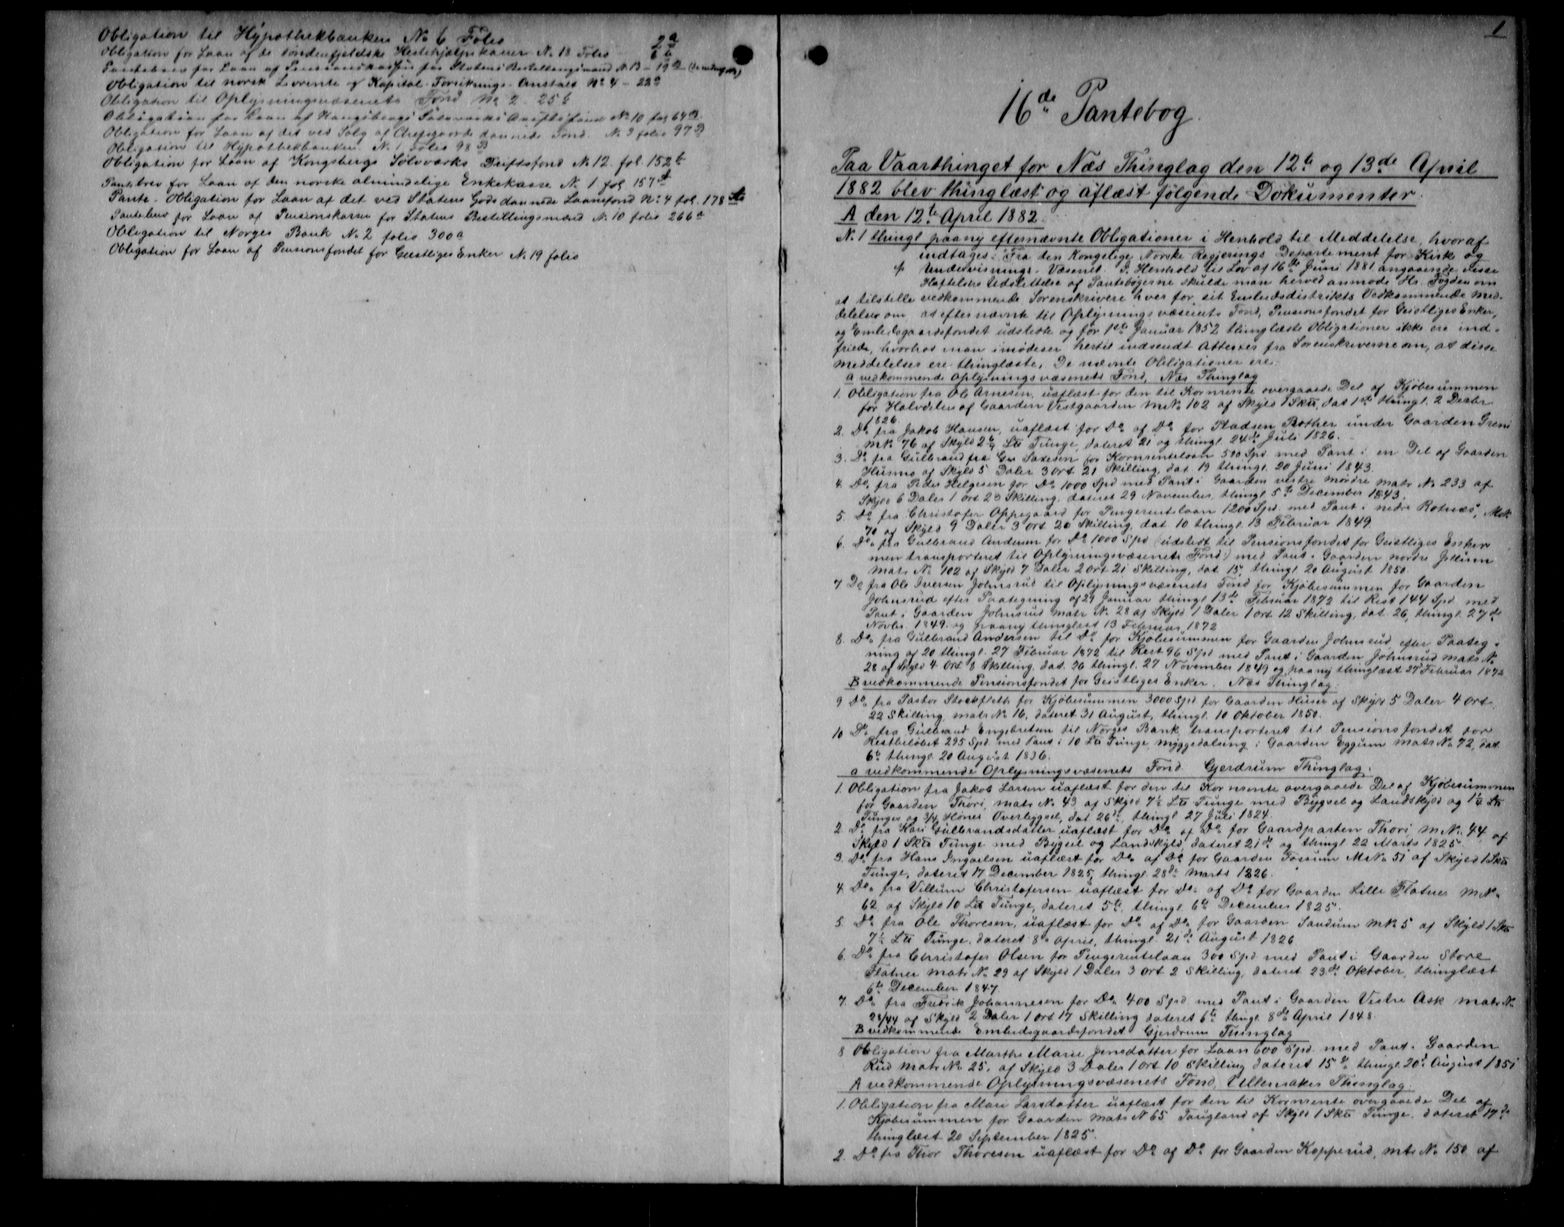 Obligation til Hypothekbanken No 6 Folio 2a
Obligation for Laan af de søndenfjeldske Hestehjælpskasser N. 18 Folio 6b
Pantebrev for Laan af Pensionskassen for Statens Bestillingsmænd N. 13 - 19
Obligation til norsk Livrente og Kapital-Forsikrings-Anstalt No 4 - 22a
Obligation til Oplysningsvæsenets Fond No 2 - 25b
Obligation for Laan af Kongsbergs Sølvværks Driftsfond No 10 fol 64
Obligation for Laan af det ved Salg af Chefsgaarde dannede Fond. N. 9 folio 97
Obligation til Hypothekbanken N. 1 Folio 98
Obligation for Laan af Kongsbergs Sølvværks Driftsfond N. 12. fol. 152
Pantebrev for Laan af den norske almindelige Enkekasse N. 1 fol 157
Pante-Obligation for Laan af det ved Statens Gods dannede Laanefond No 4 fol. 178
Pantebrev for Laan af Pensionskassen for Statens Bestillingsmænd N. 10 folio 266a
Obligation til Norges Bank No 2 folio 300a
Obligation for Laan af Pensionsfondet for Geistliges Enker N. 19 folio
1
16de Pantebog.
Paa Vaarthinget for Næs Thinglag den 12te og 13de April
1882 blev thinglæst og aflæst følgende Dokumenter.
A den 12te April 1882.
N. 1 thingl. paany efternævnte Obligationer i Henhold til Meddelelse, hvoraf
indtages: Fra den Kongelige Norske Regjerings Departement for Kirke og
Undervisnings-Væsenet. I Henhold til Lov af 16de Juni 1881 angaaende visse
Hæftelsers Udslettelse af Pantebøgerne skulde man herved anmode Hr. Fogden om
at tilstille vedkommende Sorenskrivere hver for sit Embedsdistrikts Vedkommende Med-
delelse om at efternævnte til Oplysningsvæsenets Fond, Pensionsfondet for Geistliges Enker,
og Embedsgaardsfondet udstedte og før 1ste Januar 1852 thinglæste Obligationer ikke ere ind-
friede, hvorhos man imødeser hertil indsendt Attester fra Sorenskriverne om, at disse
Meddelelser ere thinglæste. De nævnte Obligationer ere:
a vedkommende Oplysningsvæsenets Fond, Næs Thinglag
1. Obligation fra Ole Arnesen, uaflæst for den til Kornrente overgaaede Del af Kjøbesummen
for Halvdelen af Gaarden Vestgaarden MNo 102 af Skyld 1 Sk℔, dat 1ste thingl. 2 Decbr
1826.
2. Do fra Jakob Hansen, uaflæst for Do af Do for Pladsen Bother under Gaarden Greni
MNo 76 af Skyld 2½ L℔ Tunge, dateret 21 og thingl. 24de Juli 1826.
3. Do fra Gulbrand Saxesen for Kornrentelaan 500 Spd med Pant i en Del af Gaarden
Hunno af Skyld 5 Daler 3 Ort 21 Skilling, dat. 19 thingl. 20 Juni 1843.
4. Do fra Peder Helgesen for Do 1000 Spd med Pant i Gaarden vestre Mordre Matr No 233 af
Skyld 6 Daler 1 Ort 23 Skilling, dateret 29 November, thingl 5te December 1843.
5. Do fra Christofer Oppegaard for Pengerentelaan 1200 Spd. med Pant i nedre Rotnæs, MNo
70 af Skyld 9 Daler 3 Ort 20 Skilling, dat 10 thingl 13 Februar 1849.
6. Do fra Gulbrand Andrum for Do 1000 Spd (udstedt til Pensionsfondet for Geistliges Enker
men transporteret til Oplysningsvæsenets Fond) med Pant i Gaarden nordre Jellum
Matr No 102 af Skyld 7 Daler 2 Ort 21 Skilling, dat 15 thingl 20 August 1850.
7 Do fra Ole Iversen Johnsrud til Oplysningsvæsenets Fond for Kjøbesummen for Gaarden
Johnsrud efter Paategning af 29 Januar thingl 13de Februar 1872 til Rest 144 Spd med
Pant i Gaarden Johnsrud Matr No 28 af Skyld 1 Daler 1 Ort 12 Skilling, dat 26, thingl. 27de
Novbr. 1849. og paany thinglæst 13 Februar 1872
8. Do fra Gulbrand Andersen til Do for Kjøbesummen for Gaarden Johnsrud efter Paateg-
ning af 20 thingl. 27 Februar 1872 til Rest 96 Spd med Pant i Gaarden Johnsrud Matr No
28 af Skyld 4 Ort 8 Skilling, dat. 26 thingl. 27 November 1849 og paany thinglæst 27 Februar 1872
B vedkommende Pensionsfondet for Geistliges Enker. Næs Thinglag.
9 Do fra Pastor Stockfleth for Kjøbesummen 3000 Spd for Gaarden Huser af Skyld 5 Daler 4 Ort
22 Skilling Matr No 16, dateret 31 August, thingl. 10 Oktober 1850.
10 Do fra Gulbrand Engebretsen til Norges Bank, transporteret til Pensionsfondet for
Restbeløbet 295 Spd med Pant i 10 L℔ Tunge Myggedalsung i Gaarden Eggum Matr No 72, dat
6te thingl 20 August 1836.
a vedkommende Oplysningsvæsenets Fond Gjerdrum Thinglag.
1. Obligation fra Jakob Larsen uaflæst for den til Kornrente overgaaede Del af Kjøbesummen
for Gaarden Thori, Matr No 43 af Skyld 7½ L℔ Tunge med Bygsel og Landskyld og 1½ L℔
Tunges og ¾ Høner Overbygsel, dat 26de, thingl 27 Juli 1824.
2 Do fra Kari Gulbrandsdatter uaflæst for Do af Do for Gaardparten Thori M.No 44 af
Skyld 1 Sk℔ Tunge med Bygsel og Landskyld, dateret 21de og thingl 22 Marts 1825.
3. Do fra Hans Ingvelsen uaflæst for Do af Do for Gaarden Fossum MNo 51 af Skyld 1 Sk℔
Tunge, dateret 17 December 1825, thingl 28de Marts 1826.
4. Do fra Vellum Christofersen uaflæst for Do af Do for Gaarden Lille Flatner M.No
62 af Skyld 10 L℔ Tunge, dateret 5te, thingl 6te December 1825.
5. Do fra Ole Thoresen, uaflæst for Do af Do for Gaarden Sandum MNo 5 af Skyld 1 Sk℔
7½ L℔ Tunge, dateret 8de April, thingl 21de August 1826
6. Do fra Christofer Olsen for Pengerentelaan 300 Spd med Pant i Gaarden Store
Flatner Matr No 29 af Skyld 1 Daler 3 Ort 2 Skilling, dateret 23de Oktober, thinglæst
6te December 1847.
7. Do fra Fredrik Johannesen for Do 400 Spd med Pant i Gaarden Vestre Ask Matr No
28/44 af Skyld 2 Daler 1 Ort 17 Skilling dateret 6te thingl 8de April 1848.
B vedkommende Embedsgaardsfondet Gjerdrum Thinglag
8 Obligation fra Marthe Marie Jensdatter for Laan 600 Spd. med Pant i Gaarden
Rud Matr No 25. af Skyld 3 Daler 1 Ort 10 Skilling dateret 15de thingl 20de August 1851
A vedkommende Oplysningsvæsenets Fond, Ullensaker Thinglag.
1. Obligation fra Mari Larsdatter uaflæst for den til Kornrente overgaaede Del af
Kjøbesummen for Gaarden Matr No 65 Saugland af Skyld 1 Sk℔ Tunge, dateret 17de
thinglæst 20 September 1825.
2. Do fra Thor Thoresen uaflæst for Do af Do for Gaarden Kopperud, Matr No 150 af